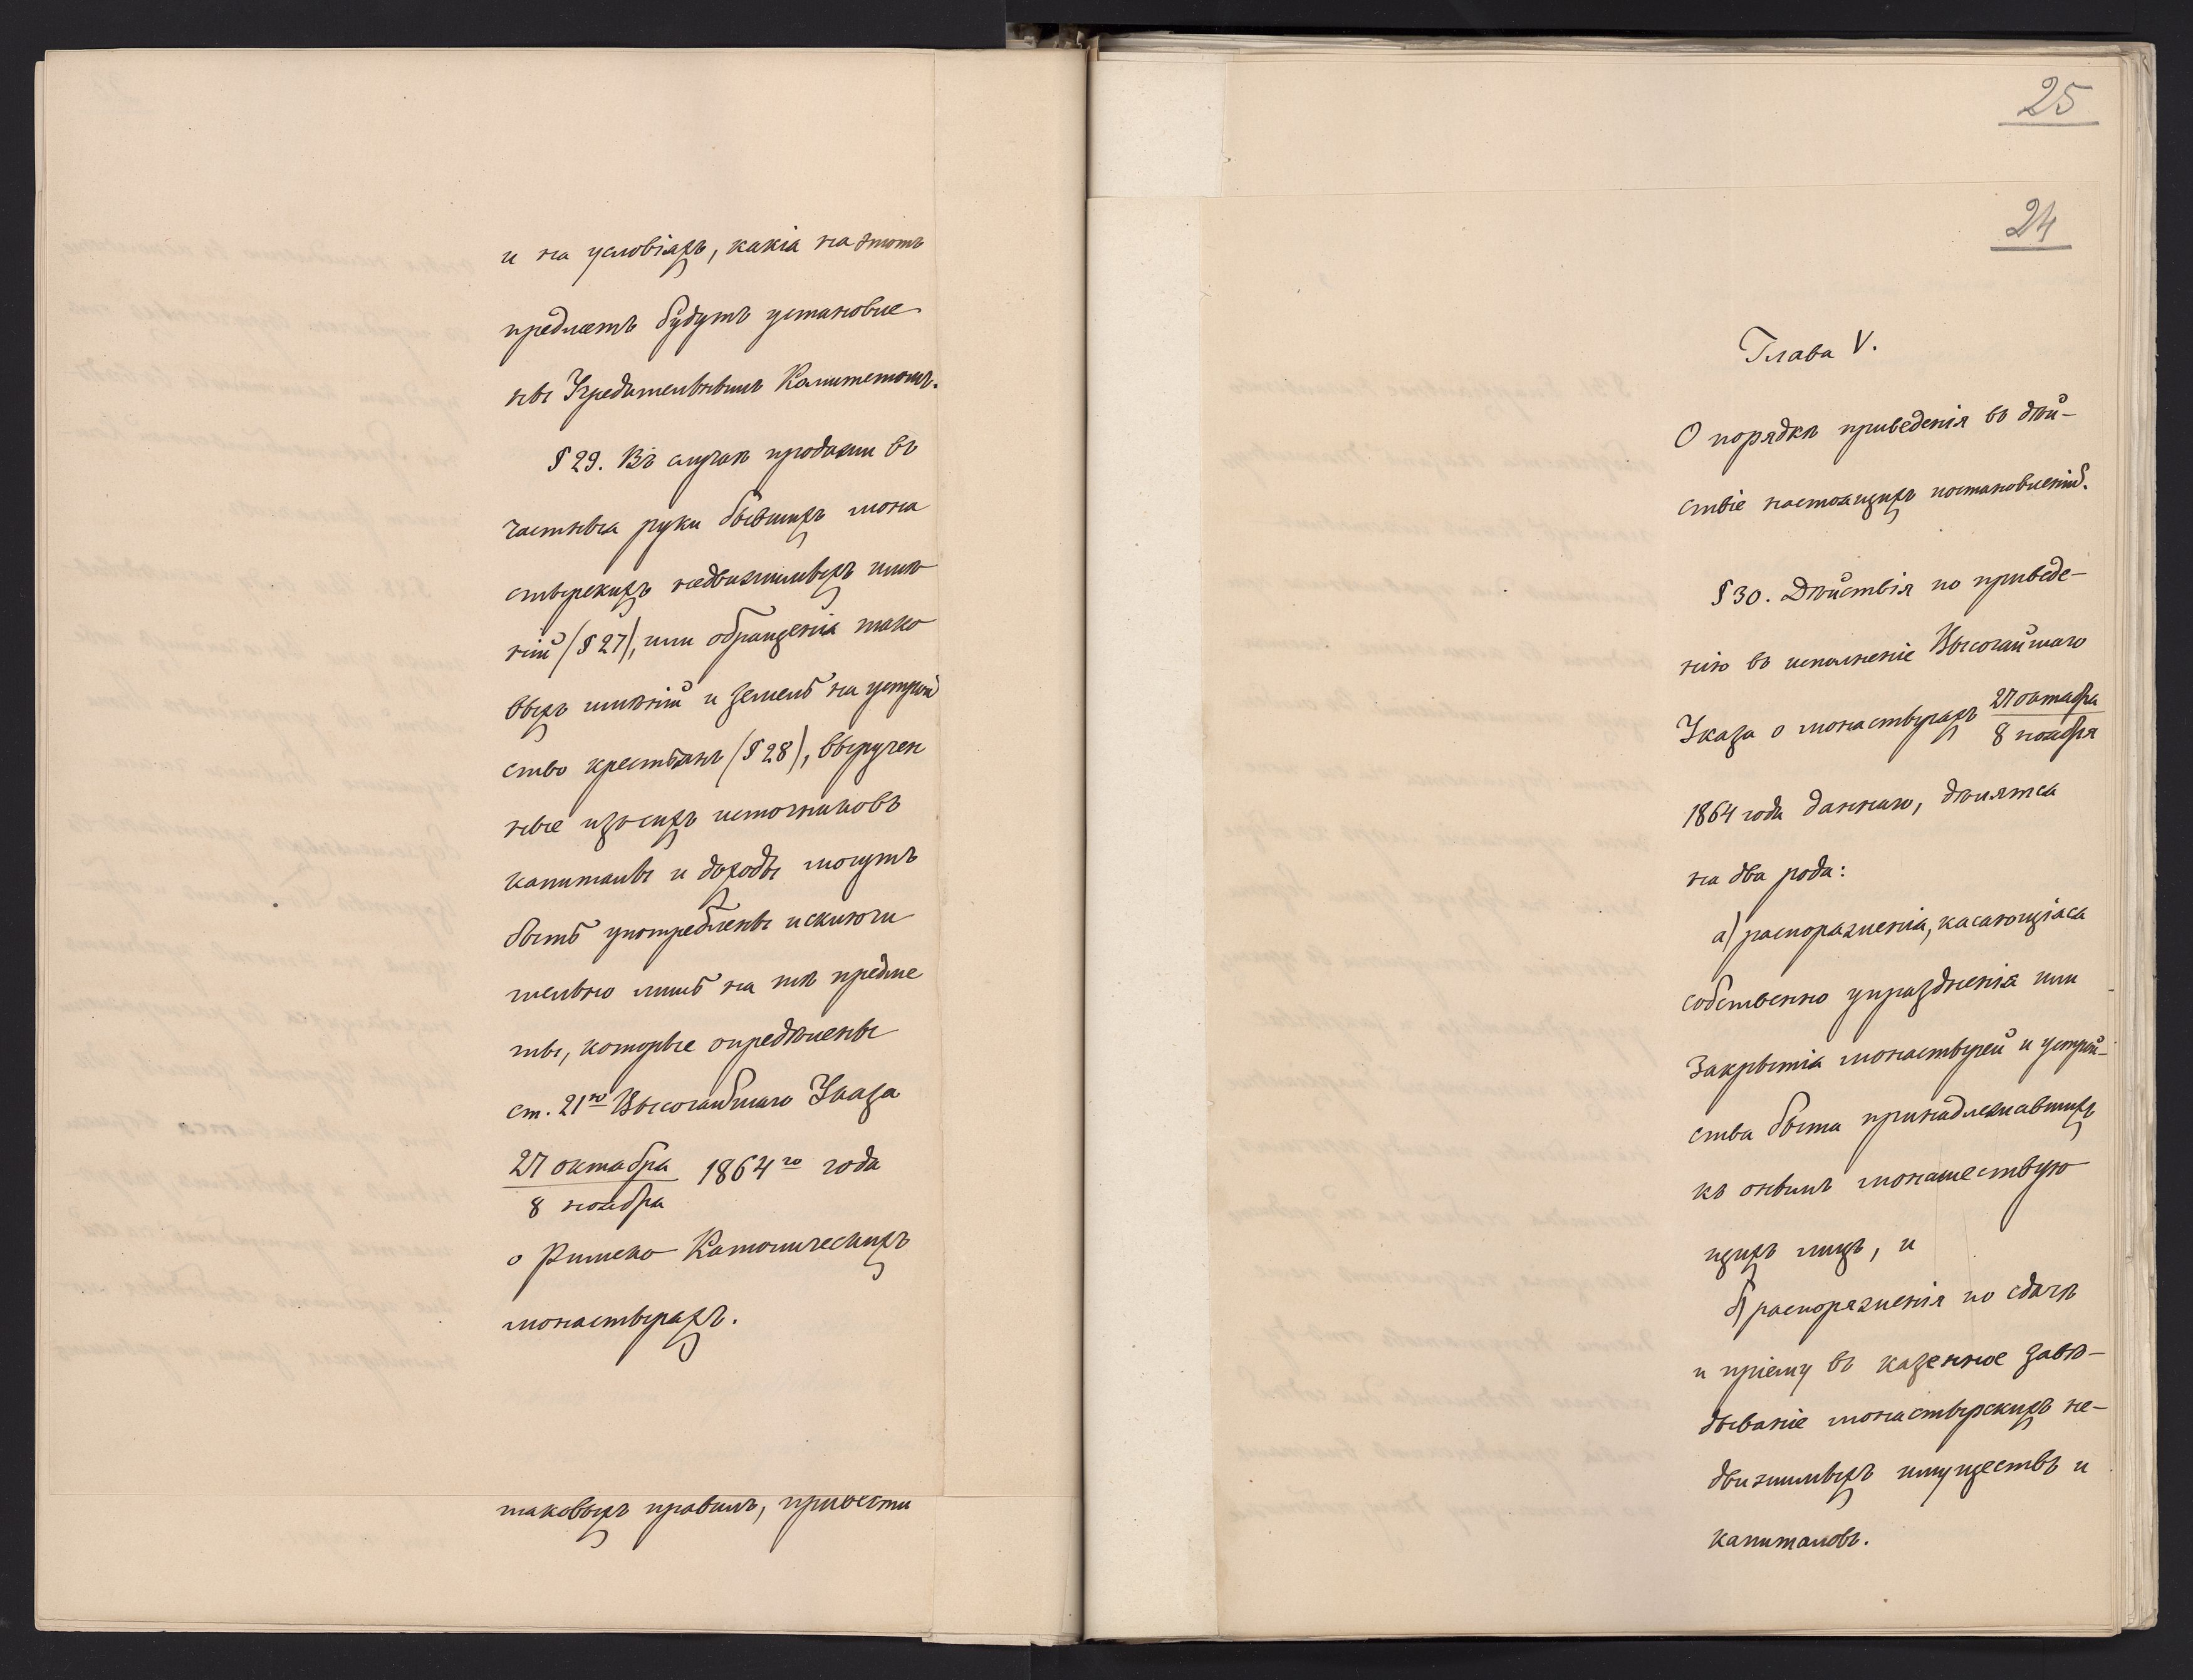 и на условіяхъ, какія на этотъ
предметъ будутъ установле
ны Учредительнымъ Комитетомъ.
§ 29. Въ случаѣ продажи въ
частныя руки бывшихъ мона
стырскихъ недвижимыхъ имѣ
ній (§ 27), или обращенія тако
выхъ имѣній и земель на устрой
ство крестьянъ (§ 28), выручен
ные изъ сихъ источниковъ
капиталы и доходы могутъ
быть употреблены исключи
тельно лишь на тѣ предме
ты, которые опредѣлены
ст. 21ю Высочайшаго Указа
27 октября
8 ноября
1864го года
о Римско Католическихъ
монастыряхъ.
таковыхъ правилъ, привести
25
24
Глава V.
О порядкѣ приведенія въ дѣй-
ствіе настоящихъ постановленій.
§ 30. Дѣйствія по приведе-
нію въ исполненіе Высочайшаго
Указа о монастыряхъ 27 октября
8 ноября
1864 года даннаго, дѣлятся
на два рода:
а) распоряженія, касающіяся
собственно упраздненія или
закрытія монастырей и устрой-
ства быта принадлежавшихъ
къ онымъ монашествую
щихъ лицъ, и
б) распоряженія по сдачѣ
и пріему въ казенное завѣ-
дываніе монастырскихъ не-
движимыхъ имуществъ и
капиталовъ.